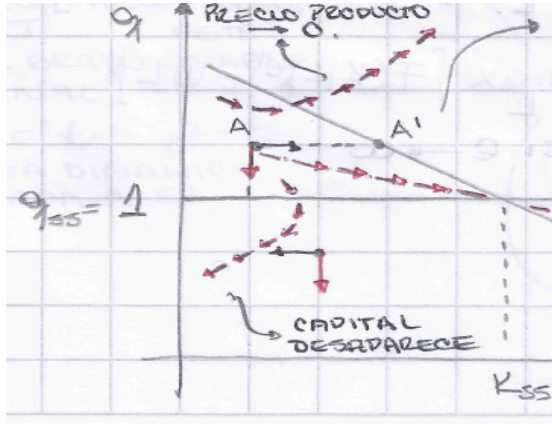 q
PRECIO PRODUCTO
→ 0.
A
A'
q_ss = 1
CAPITAL
DESAPARECE
K_ss